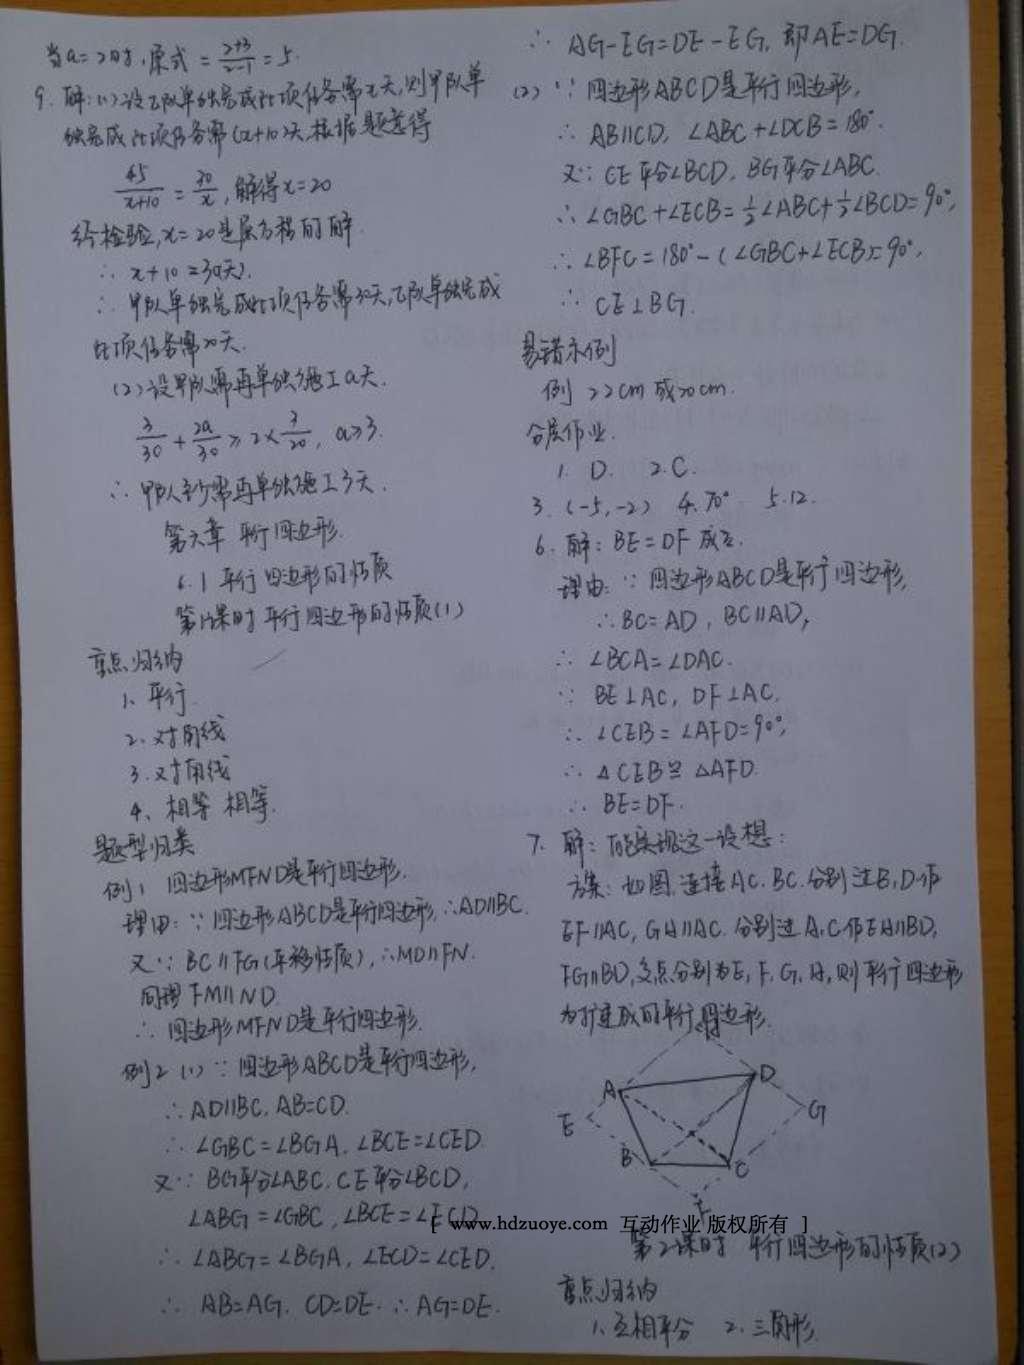 当a=2时,原式=\frac{2+3}{2-1}=5.
9. 解:(1)设乙队单独完成此项任务需x天,则甲队单
独完成此项任务需(x+10)天.根据题意得
\frac{45}{x+10}=\frac{30}{x},解得x=20
经检验,x=20是原方程的解.
∴ x+10=30(天).
∴ 甲队单独完成此项任务需30天,乙队单独完成
此项任务需20天.
(2)设甲队需再单独施工a天.
\frac{3}{30}+\frac{2a}{30}≥2×\frac{3}{20}, a≥3.
∴ 甲队至少需再单独施工3天.
第六章 平行四边形.
6.1 平行四边形的性质
第1课时 平行四边形的性质(1)
重点归纳
1、平行.
2、对角线
3、对角线
4、相等 相等.
题型归类
例1 四边形MFND是平行四边形.
理由:∵四边形ABCD是平行四边形,∴AD∥BC.
又∵BC∥FG(平移性质),∴MD∥FN.
同理FM∥ND.
∴ 四边形MFND是平行四边形.
例2 (1)∵四边形ABCD是平行四边形,
∴AD∥BC,AB=CD.
∴ ∠GBC=∠BGA,∠BCE=∠CED.
又∵BG平分∠ABC,CE平分∠BCD,
∠ABG=∠GBC,∠BCE=∠ECD
∴ ∠ABG=∠BGA,∠ECD=∠CED.
∴ AB=AG. CD=DE. ∴AG=DE.
∴ AG-EG=DE-EG,即AE=DG.
(2) ∵四边形ABCD是平行四边形,
∴ AB∥CD,∠ABC+∠DCB=180°.
又∵CE平分∠BCD,BG平分∠ABC.
∴ ∠GBC+∠ECB=½∠ABC+½∠BCD=90°,
∴ ∠BFC=180°-(∠GBC+∠ECB)=90°,
∴ CE⊥BG.
易错示例
例 22cm或20cm.
分层作业.
1. D. 2.C.
3. (-5,-2) 4.70° 5.12.
6. 解:BE=DF成立.
理由:∵四边形ABCD是平行四边形,
∴BC=AD,BC∥AD,
∴ ∠BCA=∠DAC.
∵ BE⊥AC,DF⊥AC.
∴ ∠CEB=∠AFD=90°,
∴ △CEB≌△AFD.
∴ BE=DF.
7. 解:能实现这一设想:
方案:如图,连接AC.BC.分别过B,D作
EF∥AC,GH∥AC.分别过A,C作EH∥BD,
FG∥BD,交点分别为E,F,G,H,则平行四边形
为扩建成的平行四边形.
H
A D
E G
B C
F
[ www.hdzuoye.com 互动作业 版权所有 ]
第2课时 平行四边形的性质(2)
重点归纳
1、互相平分 2、三角形.